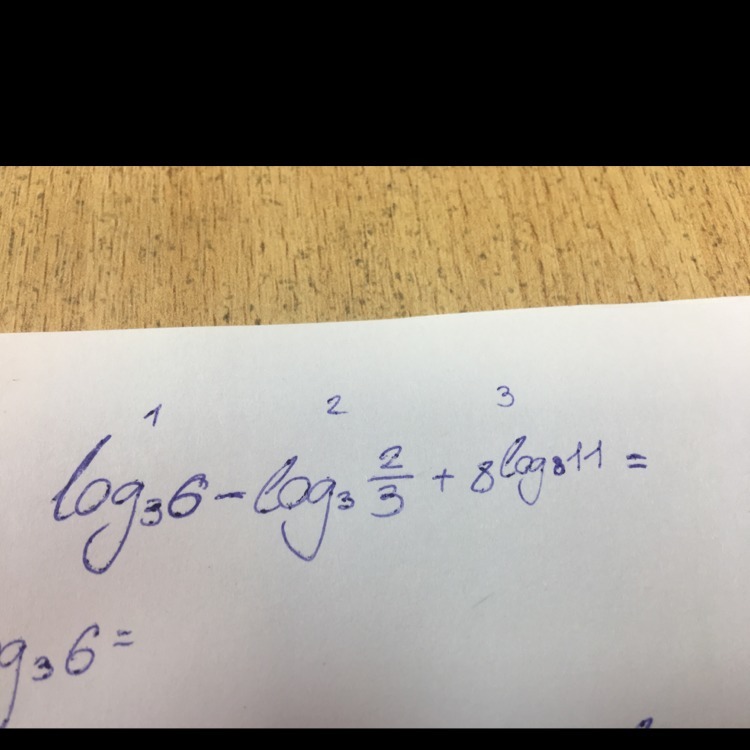 1 2 3
log₃6 - log₃ 2/3 + 8^log₈11 =
g₃6 =